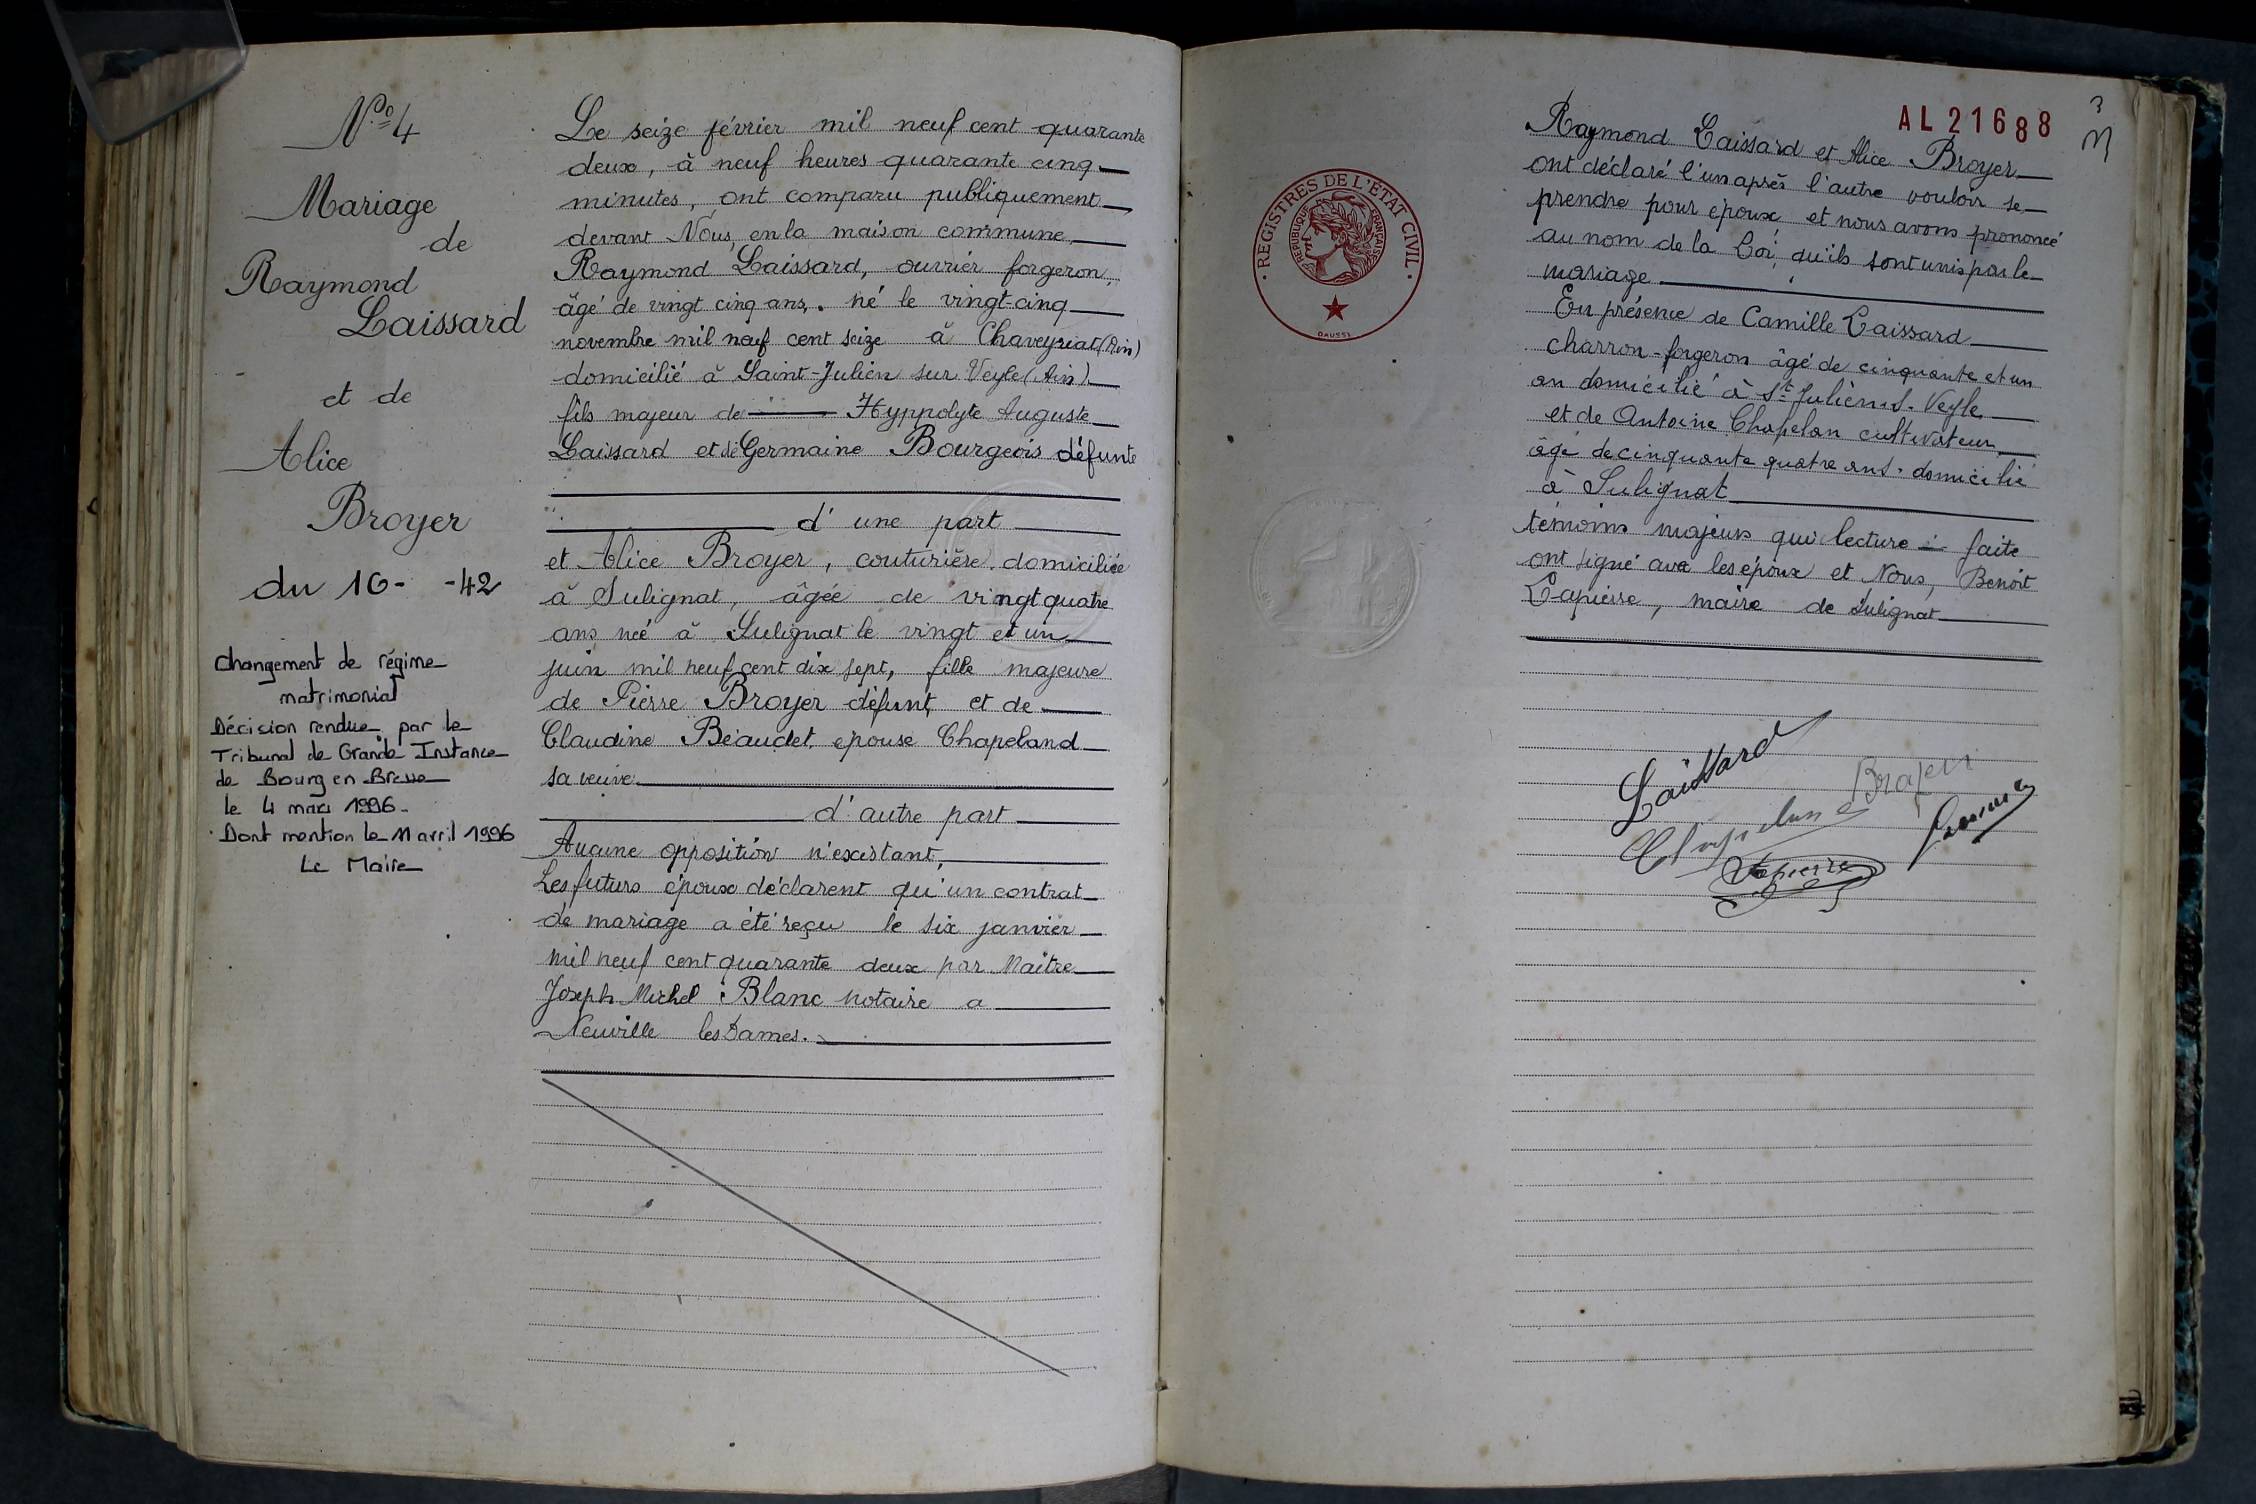 N° 4
Mariage
de
Raymond
Laissard
et de
Alice
Broyer
du 16- -42
Changement de régime
matrimonial
Décision rendue par le
Tribunal de Grande Instance
de Bourg en Bresse
le 4 mars 1996.
Dont mention le 11 avril 1996
Le Maire
Le seize février mil neuf cent quarante
deux, à neuf heures quarante cinq
minutes, ont comparu publiquement
devant Nous, en la maison commune,
Raymond Laissard, ouvrier forgeron,
âgé de vingt cinq ans, né le vingt-cinq
novembre mil neuf cent seize à Chaveyriat (Ain)
domicilié à Saint-Julien sur Veyle (Ain)
fils majeur de Hyppolyte Auguste
Laissard et de Germaine Bourgeois défunte
d'une part
et Alice Broyer, couturière, domiciliée
à Sulignat, âgée de vingt quatre
ans née à Sulignat le vingt et un
juin mil neuf cent dix sept, fille majeure
de Pierre Broyer défunt, et de
Claudine Béaudet, epouse Chapeland
sa veuve
d'autre part
Aucune opposition n'existant,
Les futurs époux déclarent qu'un contrat
de mariage a été reçu le six janvier
mil neuf cent quarante deux par Maître
Joseph Michel Blanc notaire a
Neuville les Dames.
AL 21688
3
REGISTRES DE L'ETAT CIVIL
REPUBLIQUE FRANÇAISE
DAUSSY
Raymond Laissard et Alice Broyer
ont déclaré l'un après l'autre vouloir se
prendre pour époux et nous avons prononcé
au nom de la Loi, qu'ils sont unis par le
mariage
En présence de Camille Laissard
charron-forgeron âgé de cinquante et un
an domicilié à St Julien s. Veyle
et de Antoine Chapelan cultivateur
âgé de cinquante quatre ans. domicilié
à Sulignat
témoins majeurs qui lecture faite
ont signé avec les époux et Nous, Benoit
Lapierre, maire de Sulignat
Laissard
Broyer
Chapeland
Lapierre